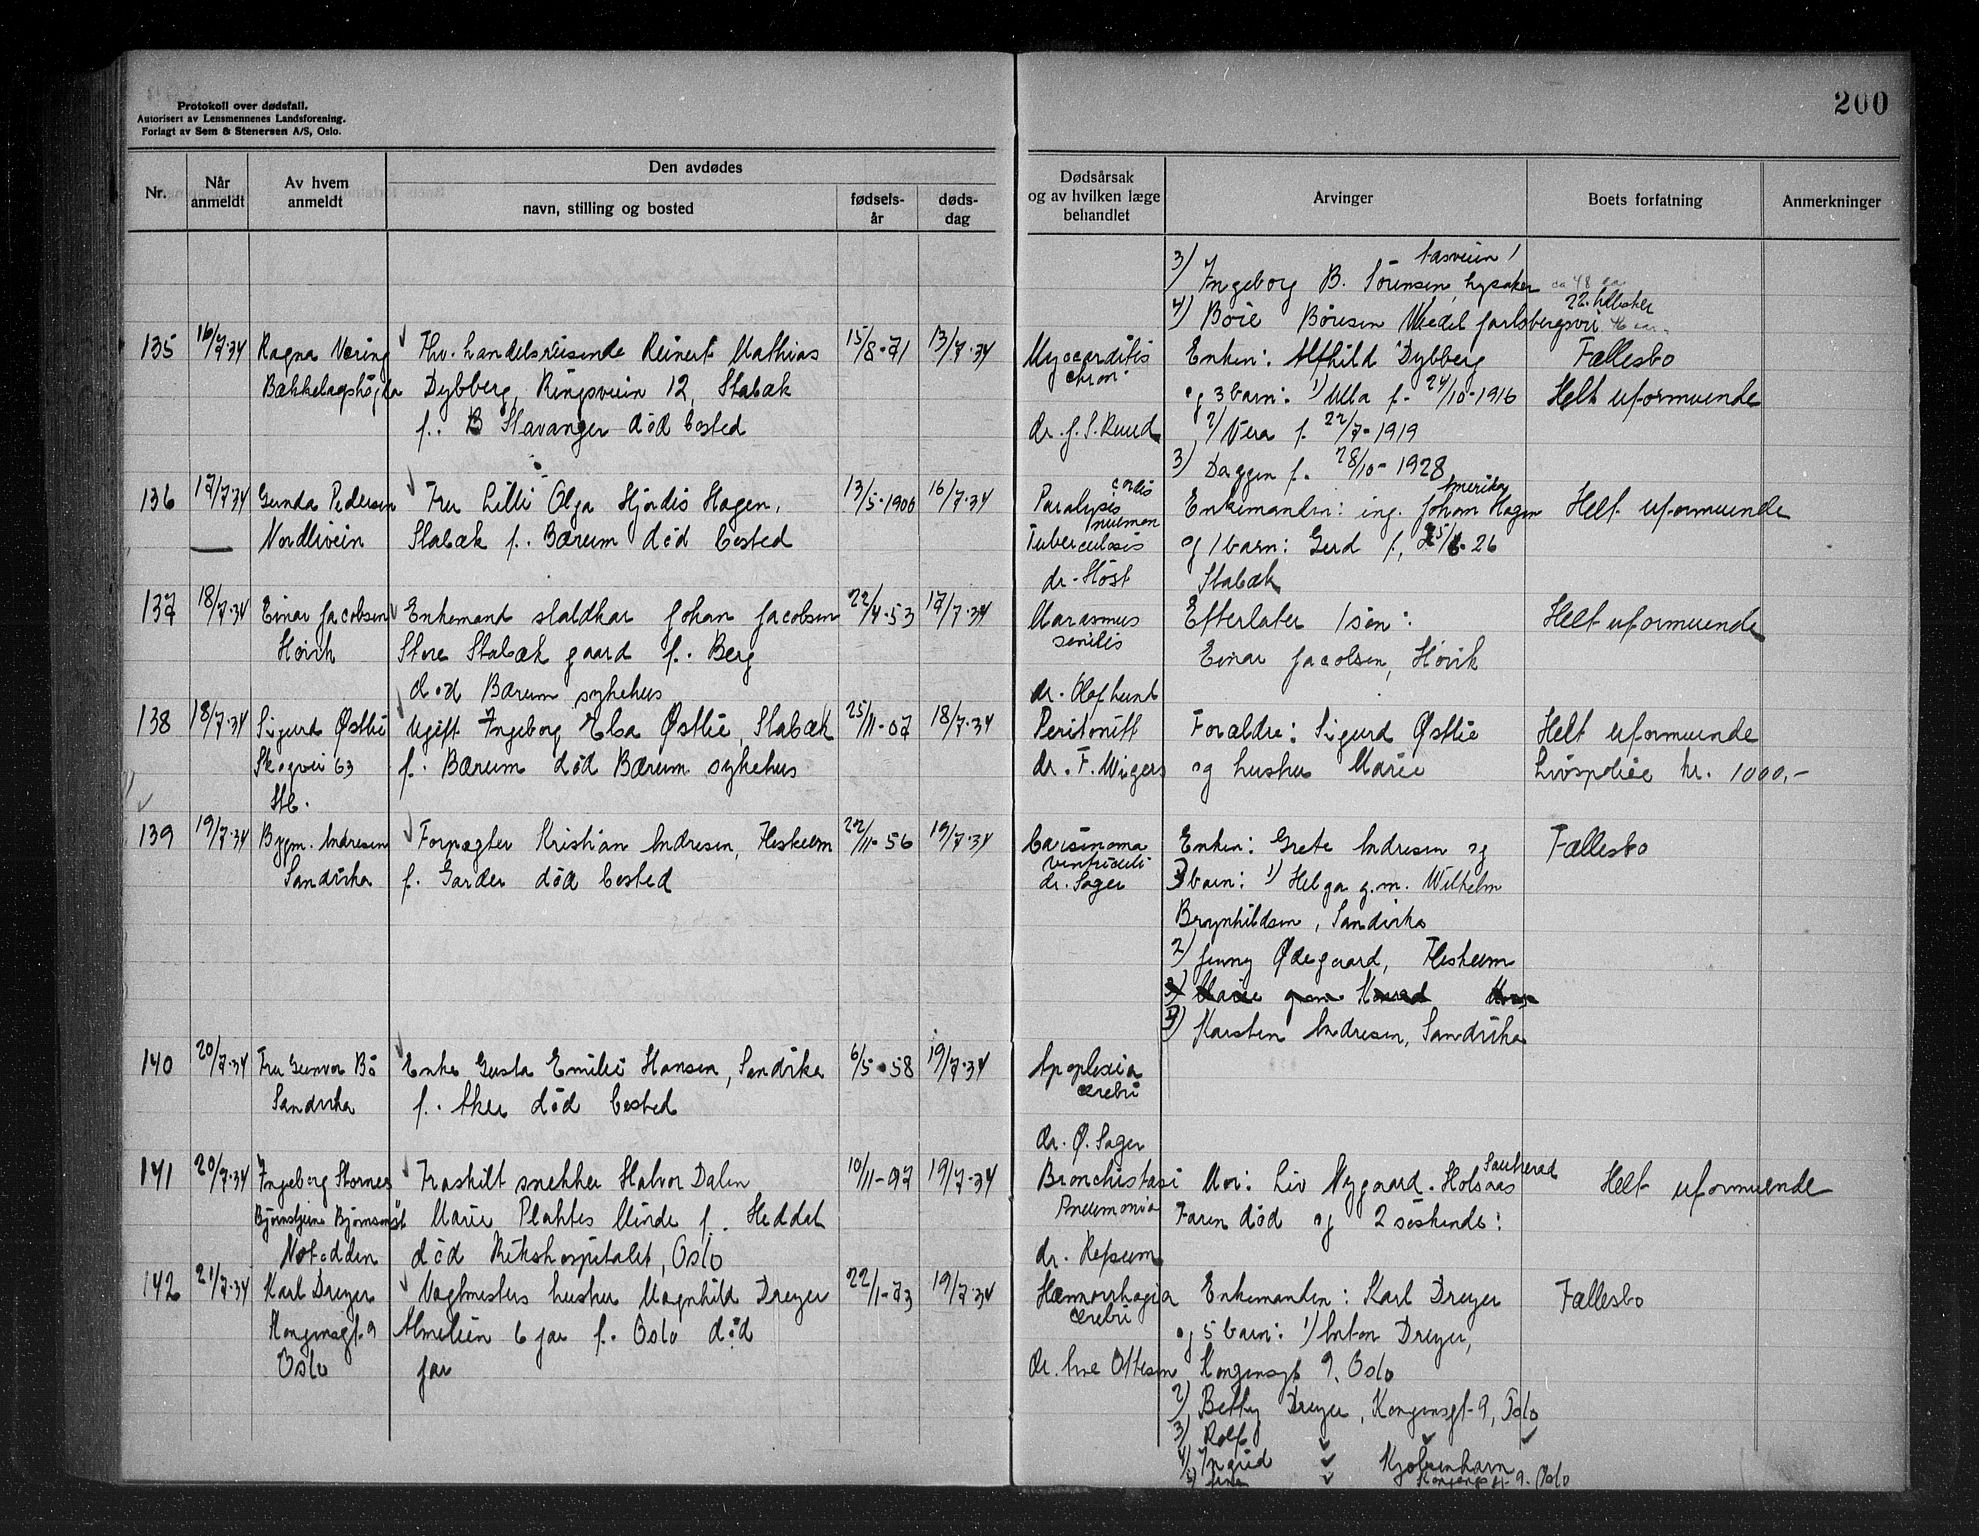 Protokoll over dødsfall.
Autorisert av Lensmennenes Landsforening.
Forlagt av Sem & Stenersen A/S, Oslo.
200
Nr.
Når anmeldt
Av hvem anmeldt
Den avdødes
navn, stilling og bosted
fødsels-år
døds-dag
Dødsårsak og av hvilken læge behandlet
Arvinger
Boets forfatning
Anmerkninger
3) Ingeborg B. Sörensen, Lysaker
4) Böie Böresen Wedel Jarlsbergsvei
135 16/7·34 Ragna Næring Fhv. handelsreisende Reinert Mathias 15/8-71 13/7·34 Myocarditis Enken: Alfhild Dybberg Fællesbo
Bækkelagshögda Dybberg, Ringsveien 12, Stabæk chron. og 3 barn: 1) Ulla f. 24/10-1916 Helt uformuende
f.. Stavanger död bosted dr. J. S. Ruud 2) Vera f. 22/7-1919
3) Daggen f. 28/10-1928
136 17/7·34 Gunda Pedersen Fru Lilli Olga Hjördis Hagen, 13/5-1900 16/7·34 Paralysis cordis Enkemanden: ing. Johan Hagen Amerika Helt uformuende
Nordliveien Stabæk f. Bærum död bosted Tuberculosis pulmon og 1 barn: Gerd f. 26
dr. Höst Stabæk
137 18/7·34 Einar Jacobsen Enkemand staldkar Johan Jacobsen 22/4·53 17/7·34 Marasmus Efterlater 1 sön: Helt uformuende
Hövik Store Stabæk gaard f. Berg senilis Einar Jacobsen, Hövik
död Bærum sykehus dr. Olaf Lund
138 18/7·34 Sigurd Østlie Ugift Ingeborg Elsa Østlie, Stabæk 25/11-07 18/7·34 Peritonitt Forældre: Sigurd Østlie Helt uformuende
Skogvei 63 f. Bærum död Bærum sykehus dr. F. Wigers og hustru Marie Livspolice kr. 1000,-
Stb.
139 19/7·34 Bygm. Andresen Forpagter Kristian Andresen, 22/11-56 19/7·34 Carsinoma Enken: Grete Andresen og Fællesbo
Sandvika f. Garder död bosted ventriculi dr. Sager 3 barn: 1) Helga g.m. Wilhelm
Brynhildsen, Sandvika
2) Jenny Ødegaard,
3) Marie gm Konrad
3) Karsten Andresen, Sandvika
140 20/7·34 Fru Gunvor Bö Enke Gusta Emilie Hansen, Sandvika 6/5-58 19/7·34 Apoplexia
Sandvika f. Aker död bosted cerebri
dr. Ø. Sager
141 20/7·34 Ingeborg Stornes Fraskilt snekker Halvor Dalen 10/11-97 19/7·34 Bronchistasi Mor: Liv Nygaard. Holsaas Sauherad Helt uformuende
Bjørnstjerne Bjørnsonsgt Marie Plahtes Minde f. Heddal Pneumonia Faren död og 2 söskende:
Notodden död Rikshospitalet, Oslo dr. Refsum
142 21/7·34 Karl Dreyer Vagtmesters hustru Magnhild Dreyer 22/1-73 19/7·34 Hæmorrhagia Enkemanden: Karl Dreyer Fællesbo
Kongensgt. 9 Almeliien 6 Jar f. Oslo död cerebri og 5 barn: 1) Anton Dreyer,
Oslo Jar dr. Arne Ottesen Kongensgt 9, Oslo
2) Betty Dreyer, Kongensgt. 9, Oslo
3) Rolf
4) Ingrid Kjöbenhavn
5) Kongensgt. 9. Oslo